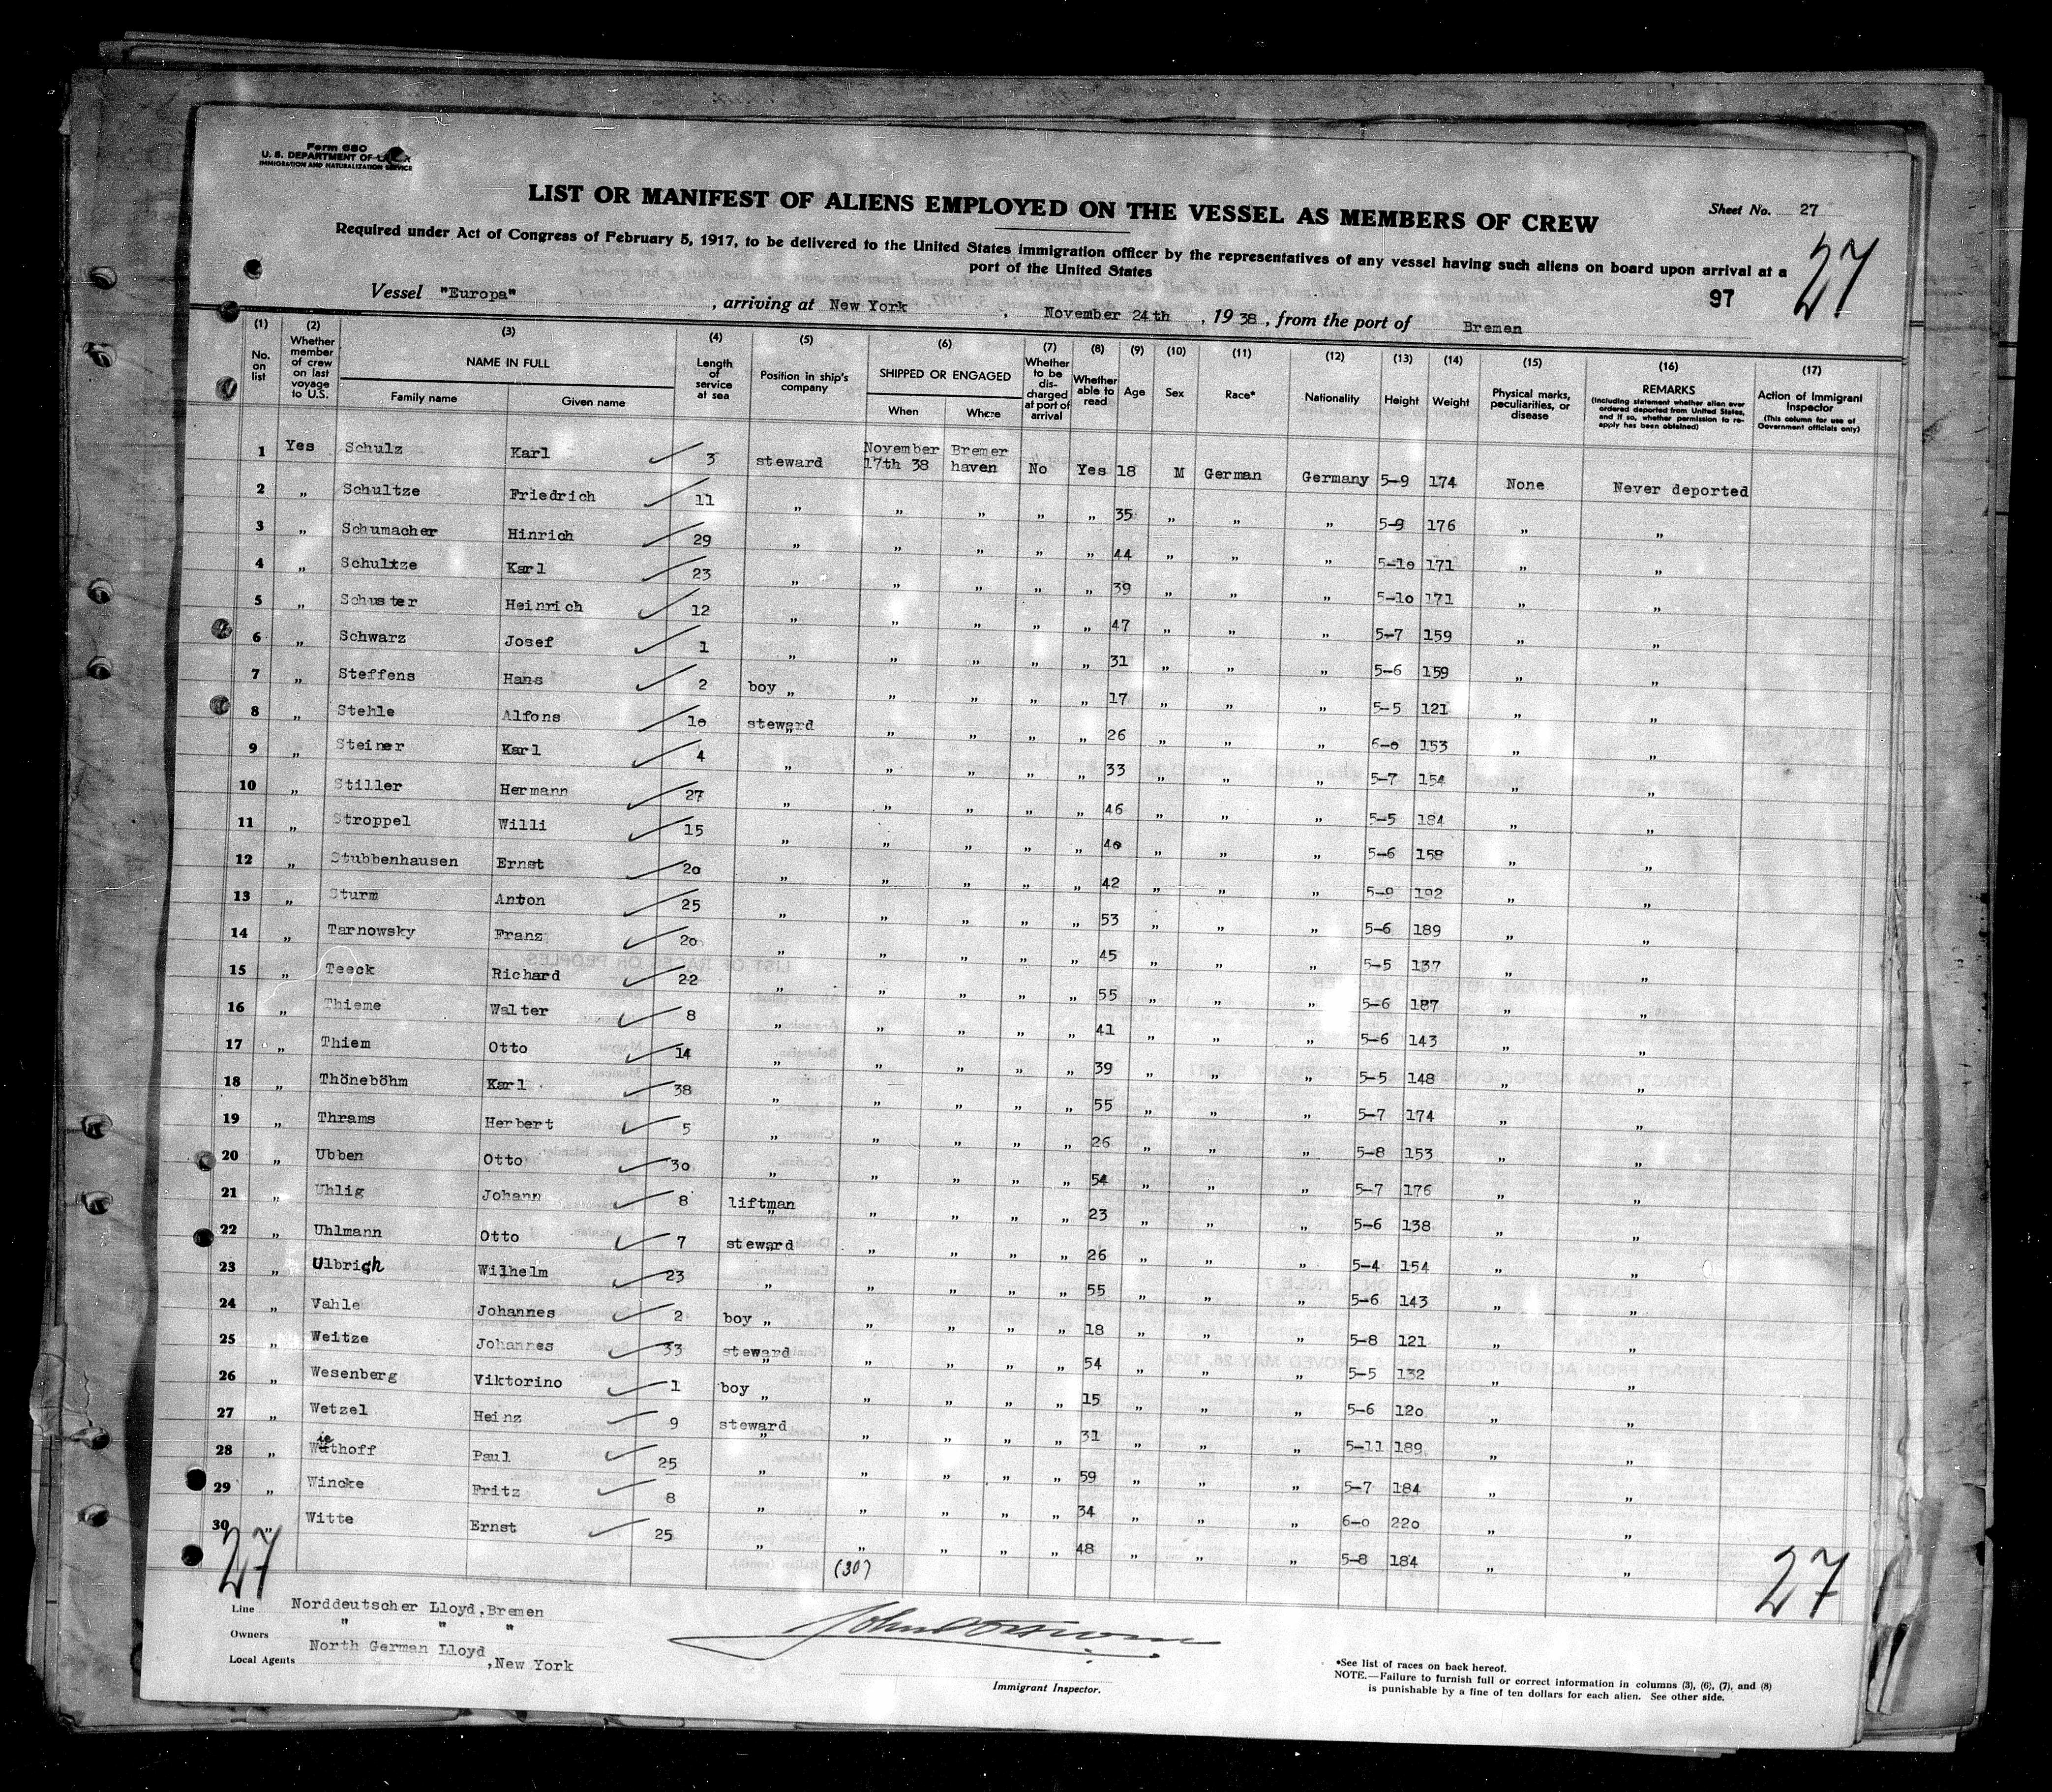 Form 680
U. S. DEPARTMENT OF
IMMIGRATION AND NATURALIZATION SERVICE
LIST OR MANIFEST OF ALIENS EMPLOYED ON THE VESSEL AS MEMBERS OF CREW
Sheet No. 27
Required under Act of Congress of February 5, 1917, to be delivered to the United States immigration officer by the representatives of any vessel having such aliens on board upon arrival at a
port of the United States
27
97
Vessel "Europa", arriving at New York, November 24th, 1938, from the port of Bremen
(1) (2) (3) (4) (5) (6) (7) (8) (9) (10) (11) (12) (13) (14) (15) (16) (17)
No. on list Whether member of crew on last voyage to U.S. NAME IN FULL Family name Given name Length of service at sea Position in ship's company SHIPPED OR ENGAGED When Where Whether to be discharged at port of arrival Whether able to read Age Sex Race* Nationality Height Weight Physical marks, peculiarities, or disease REMARKS (Including statement whether alien ever ordered deported from United States, and if so, whether permission to re-apply has been obtained) Action of Immigrant Inspector (This column for use of Government officials only)
1 Yes Schulz Karl 3 steward November 17th 38 Bremer haven No Yes 18 M German Germany 5-9 174 None Never deported
2 " Schultze Friedrich 11 " " " " " 35 " " " 5-9 176 " "
3 " Schumacher Hinrich 29 " " " " " 44 " " " 5-10 171 " "
4 " Schultze Karl 23 " " " " " 39 " " " 5-10 171 " "
5 " Schuster Heinrich 12 " " " " " 47 " " " 5-7 159 " "
6 " Schwarz Josef 1 " " " " " 31 " " " 5-6 159 " "
7 " Steffens Hans 2 boy " " " " " 17 " " " 5-5 121 " "
8 " Stehle Alfons 10 steward " " " " 26 " " " 6-0 153 " "
9 " Steiner Karl 4 " " " " " 33 " " " 5-7 154 " "
10 " Stiller Hermann 27 " " " " " 46 " " " 5-5 184 " "
11 " Stroppel Willi 15 " " " " " 40 " " " 5-6 158 " "
12 " Stubbenhausen Ernst 20 " " " " " 42 " " " 5-9 192 " "
13 " Sturm Anton 25 " " " " " 53 " " " 5-6 189 " "
14 " Tarnowsky Franz 20 " " " " " 45 " " " 5-5 137 " "
15 " Teeck Richard 22 " " " " " 55 " " " 5-6 187 " "
16 " Thieme Walter 8 " " " " " 41 " " " 5-6 143 " "
17 " Thiem Otto 14 " " " " " 39 " " " 5-5 148 " "
18 " Thöneböhm Karl 38 " " " " " 55 " " " 5-7 174 " "
19 " Thrams Herbert 5 " " " " " 26 " " " 5-8 153 " "
20 " Ubben Otto 30 " " " " " 54 " " " 5-7 176 " "
21 " Uhlig Johann 8 liftman " " " " 23 " " " 5-6 138 " "
22 " Uhlmann Otto 7 steward " " " " 26 " " " 5-4 154 " "
23 " Ulbrich Wilhelm 23 " " " " " 55 " " " 5-6 143 " "
24 " Vahle Johannes 2 boy " " " " " 18 " " " 5-8 121 " "
25 " Weitze Johannes 33 steward " " " " 54 " " " 5-5 132 " "
26 " Wesenberg Viktorino 1 boy " " " " " 15 " " " 5-6 120 " "
27 " Wetzel Heinz 9 steward " " " " 31 " " " 5-11 189 " "
28 " Wiethoff Paul 25 " " " " " 59 " " " 5-7 184 " "
29 " Wincke Fritz 8 " " " " " 34 " " " 6-0 220 " "
30 " Witte Ernst 25 " " " " " 48 " " " 5-8 184 " "
(30)
27
27
Line Norddeutscher Lloyd, Bremen
Owners " " "
Local Agents North German Lloyd, New York
Immigrant Inspector.
*See list of races on back hereof.
NOTE.—Failure to furnish full or correct information in columns (3), (6), (7), and (8)
is punishable by a fine of ten dollars for each alien. See other side.